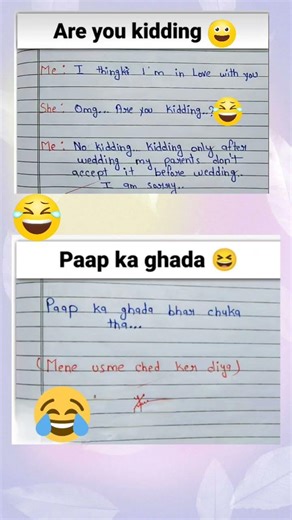 Are you kidding
Me: I thingks I'm in Love with you
She: Omg... Are you kidding..?
Me: No kidding.. kidding only after
wedding my parents don't
accept it before wedding..
I am sorry..
Paap ka ghada
Paap ka ghada bhar chuka
tha...
(Mene usme ched ker diya)